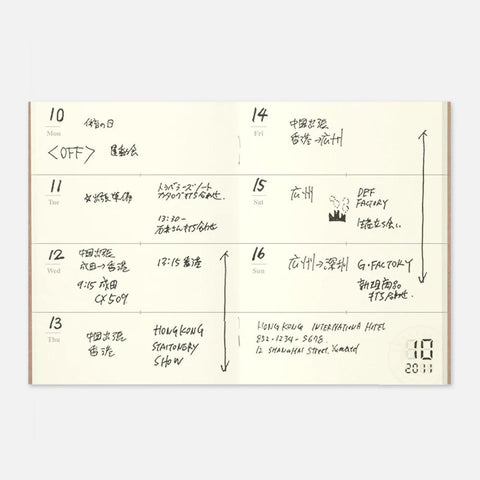 10
Mon
体育の日
<OFF> 運動会
11
Tue
出張準備
トラベラーズノート
カタログ打ち合わせ
13:30-
打ち合わせ
12
Wed
中国出張
成田→香港
9:15 成田
CX509
13:15 香港
13
Thu
中国出張
香港
HONGKONG
STATIONERY
SHOW
14
Fri
中国出張
香港→広州
15
Sat
広州
DEF
FACTORY
立ち会い
16
Sun
広州→深圳
G・FACTORY
新商品
打ち合わせ
HONG KONG INTERNATIONAL HOTEL
852-1234-5678
12 SHANGHAI STREET,
10
2011